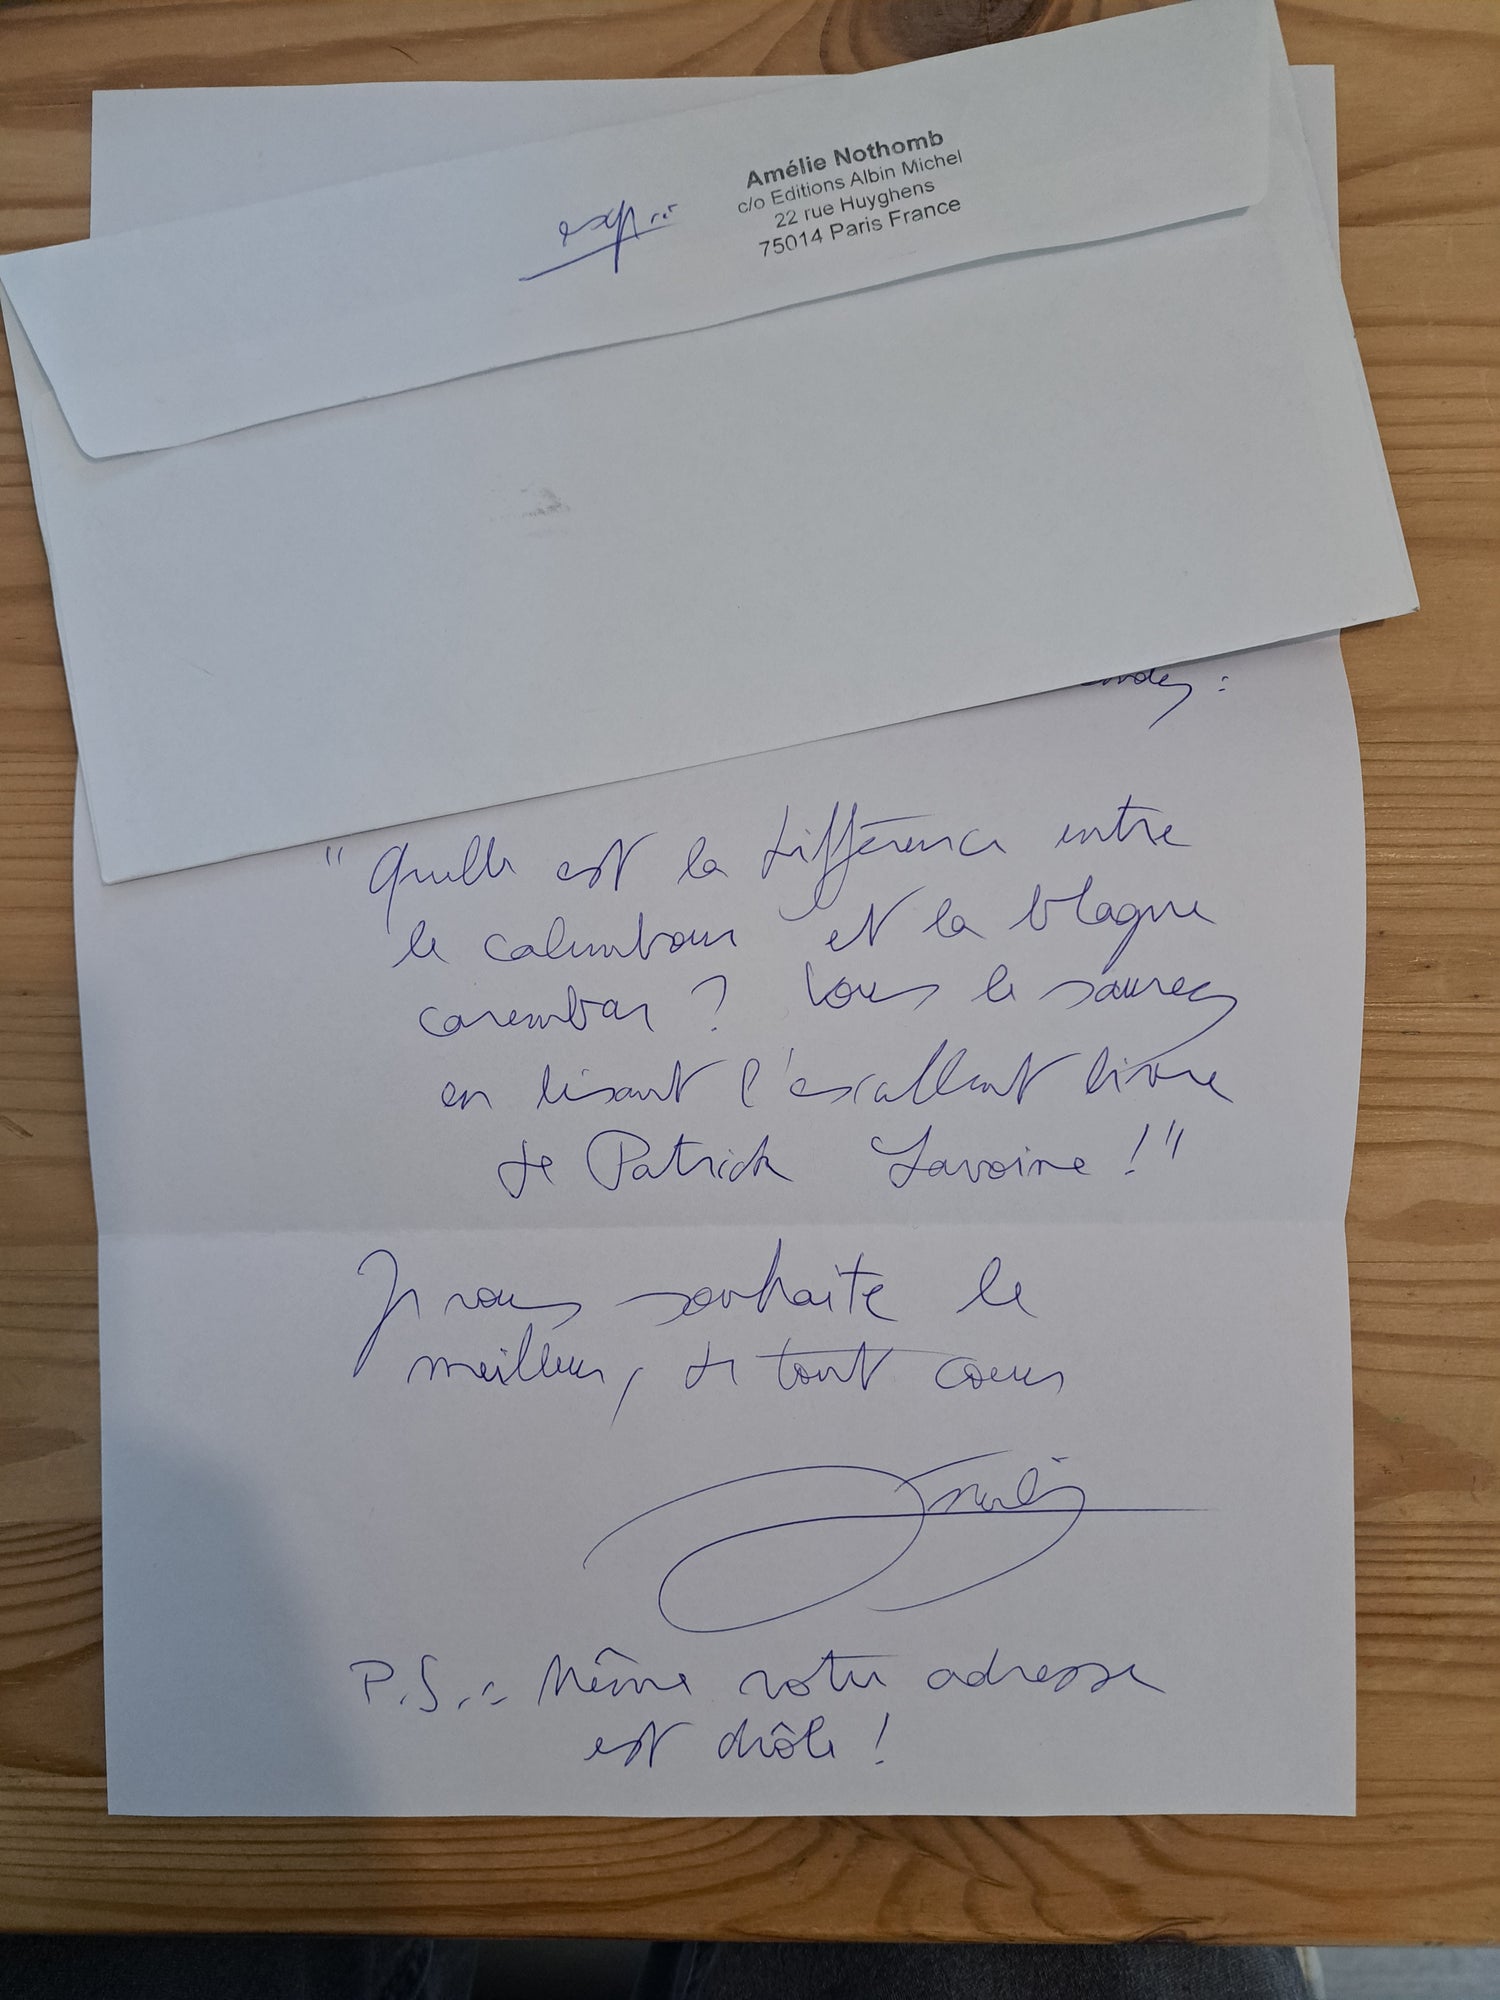 Amélie Nothomb
c/o Editions Albin Michel
22 rue Huyghens
75014 Paris France
exp.:
:
"Quelle est la différence entre
le calembour et la blague
carambar ? Vous le saurez
en lisant l'excellent livre
de Patrick Lavoine !"
Je vous souhaite le
meilleur, de tout coeur
Amélie
P.S.: Même votre adresse
est drôle !